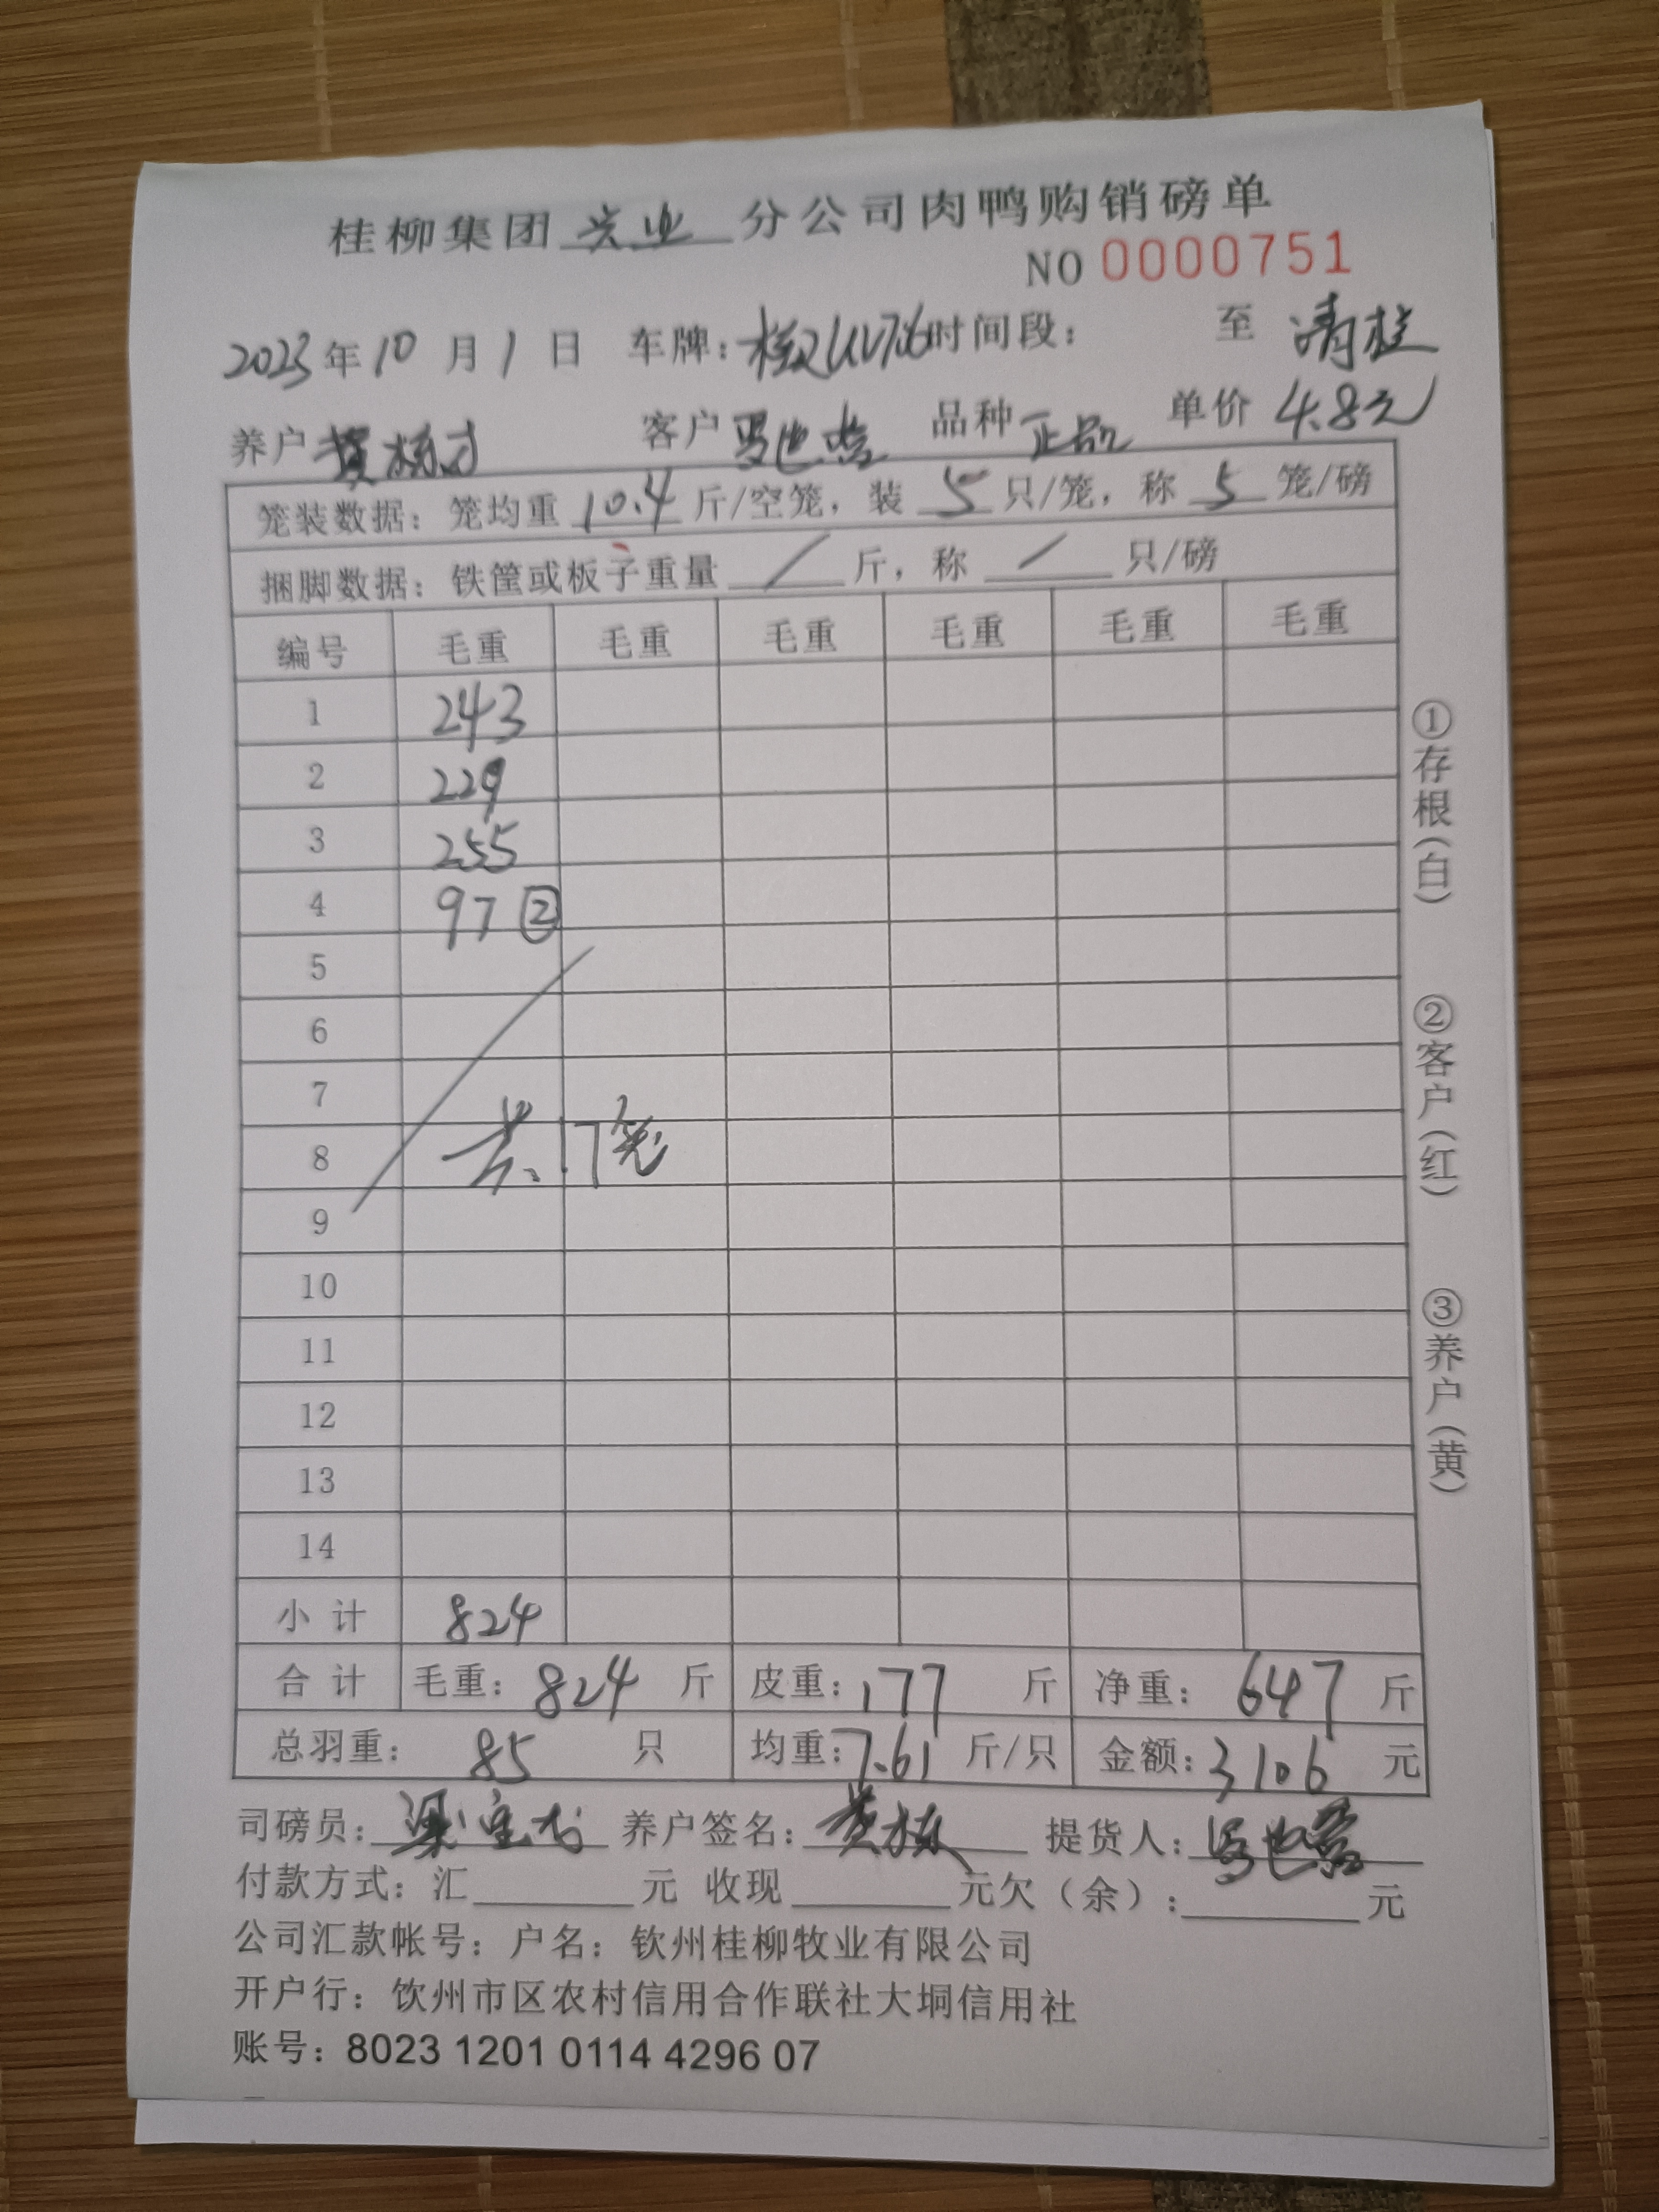 桂柳集团 兴业 分公司肉鸭购销磅单
NO 0000751
2023年10月1日 车牌: 时间段: 至 清桂
养户 黄栋才 客户 品种 正品 单价 4.8元
笼装数据: 笼均重 10.4 斤/空笼, 装 5 只/笼, 称 5 笼/磅
捆脚数据: 铁筐或板子重量 / 斤, 称 / 只/磅
编号 毛重 毛重 毛重 毛重 毛重 毛重
1 243
2 229
3 255
4 97 ②
5
6
7
8 共17笼
9
10
11
12
13
14
小计 824
合计 毛重: 824 斤 皮重: 177 斤 净重: 647 斤
总羽重: 85 只 均重: 7.61 斤/只 金额: 3106 元
司磅员: 养户签名: 黄栋 提货人:
付款方式: 汇 元 收现 元欠(余): 元
公司汇款帐号: 户名: 钦州桂柳牧业有限公司
开户行: 钦州市区农村信用合作联社大垌信用社
账号: 8023 1201 0114 4296 07
①存根(白)
②客户(红)
③养户(黄)